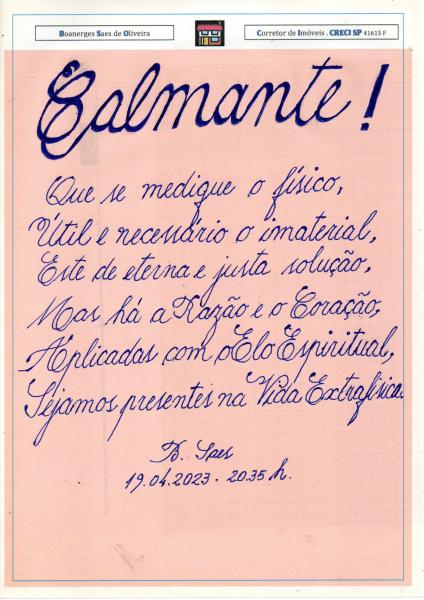 Boanerges Saes de Oliveira
Corretor de Imóveis . CRECI SP 41615 F
Calmante!
Que se medique o físico,
Útil e necessário o imaterial,
Este de eterna e justa solução,
Mas há a Razão e o Coração,
Aplicadas com o Elo Espiritual,
Sejamos presentes na Vida Extrafísica.
B. Saes
19.04.2023 - 20.35 h.